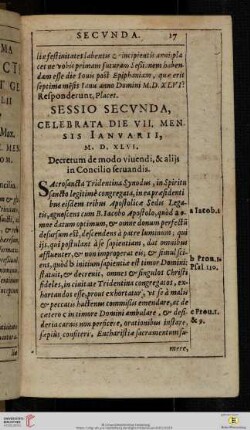 SECVNDA. 17
tis festiuitates labentis & incipientis anni: placet
ne vobis primam futuram Sess: nem habendam
esse die Iouis post Epiphaniam, quæ erit
septima mẽsis Ianu. anno Domini M.D.XLVI?
Responderunt, Placet.
SESSIO SECVNDA,
CELEBRATA DIE VII. MENSIS
IANVARII,
M. D. XLVI.
Decretum de modo viuendi, & alijs
in Concilio seruandis.
SAcrosancta Tridentina Synodus, in Spiritu
sancto legitimè congregata, in ea præsidentibus
eisdem tribus Apostolicæ Sedis Legatis,
agnoscens cum B. Iacobo Apostolo, quòd omne
a Iacob. 1
datum optimum, & omne donum perfectũ
desursum est, descendens à patre luminum: qui
ijs, qui postulant à se sapientiam, dat omnibus
affluenter, & non improperat eis; & simul sciens,
quòd b initium sapientiæ est timor Domini:
b Prou. 1.
Psal. 110.
statuit, & decreuit, omnes & singulos Christi
fideles, in ciuitate Tridentina congregatos, exhortandos
esse, prout exhortatur, vt se à malis
& peccatis hactenus commissis emendare, ac de
cetero c in timore Domini ambulare, & desideria
c Prou. 1.
& 9.
carnis non perficere, orationibus instare,
sæpiùs confiteri, Eucharistiæ sacramentum sumere,